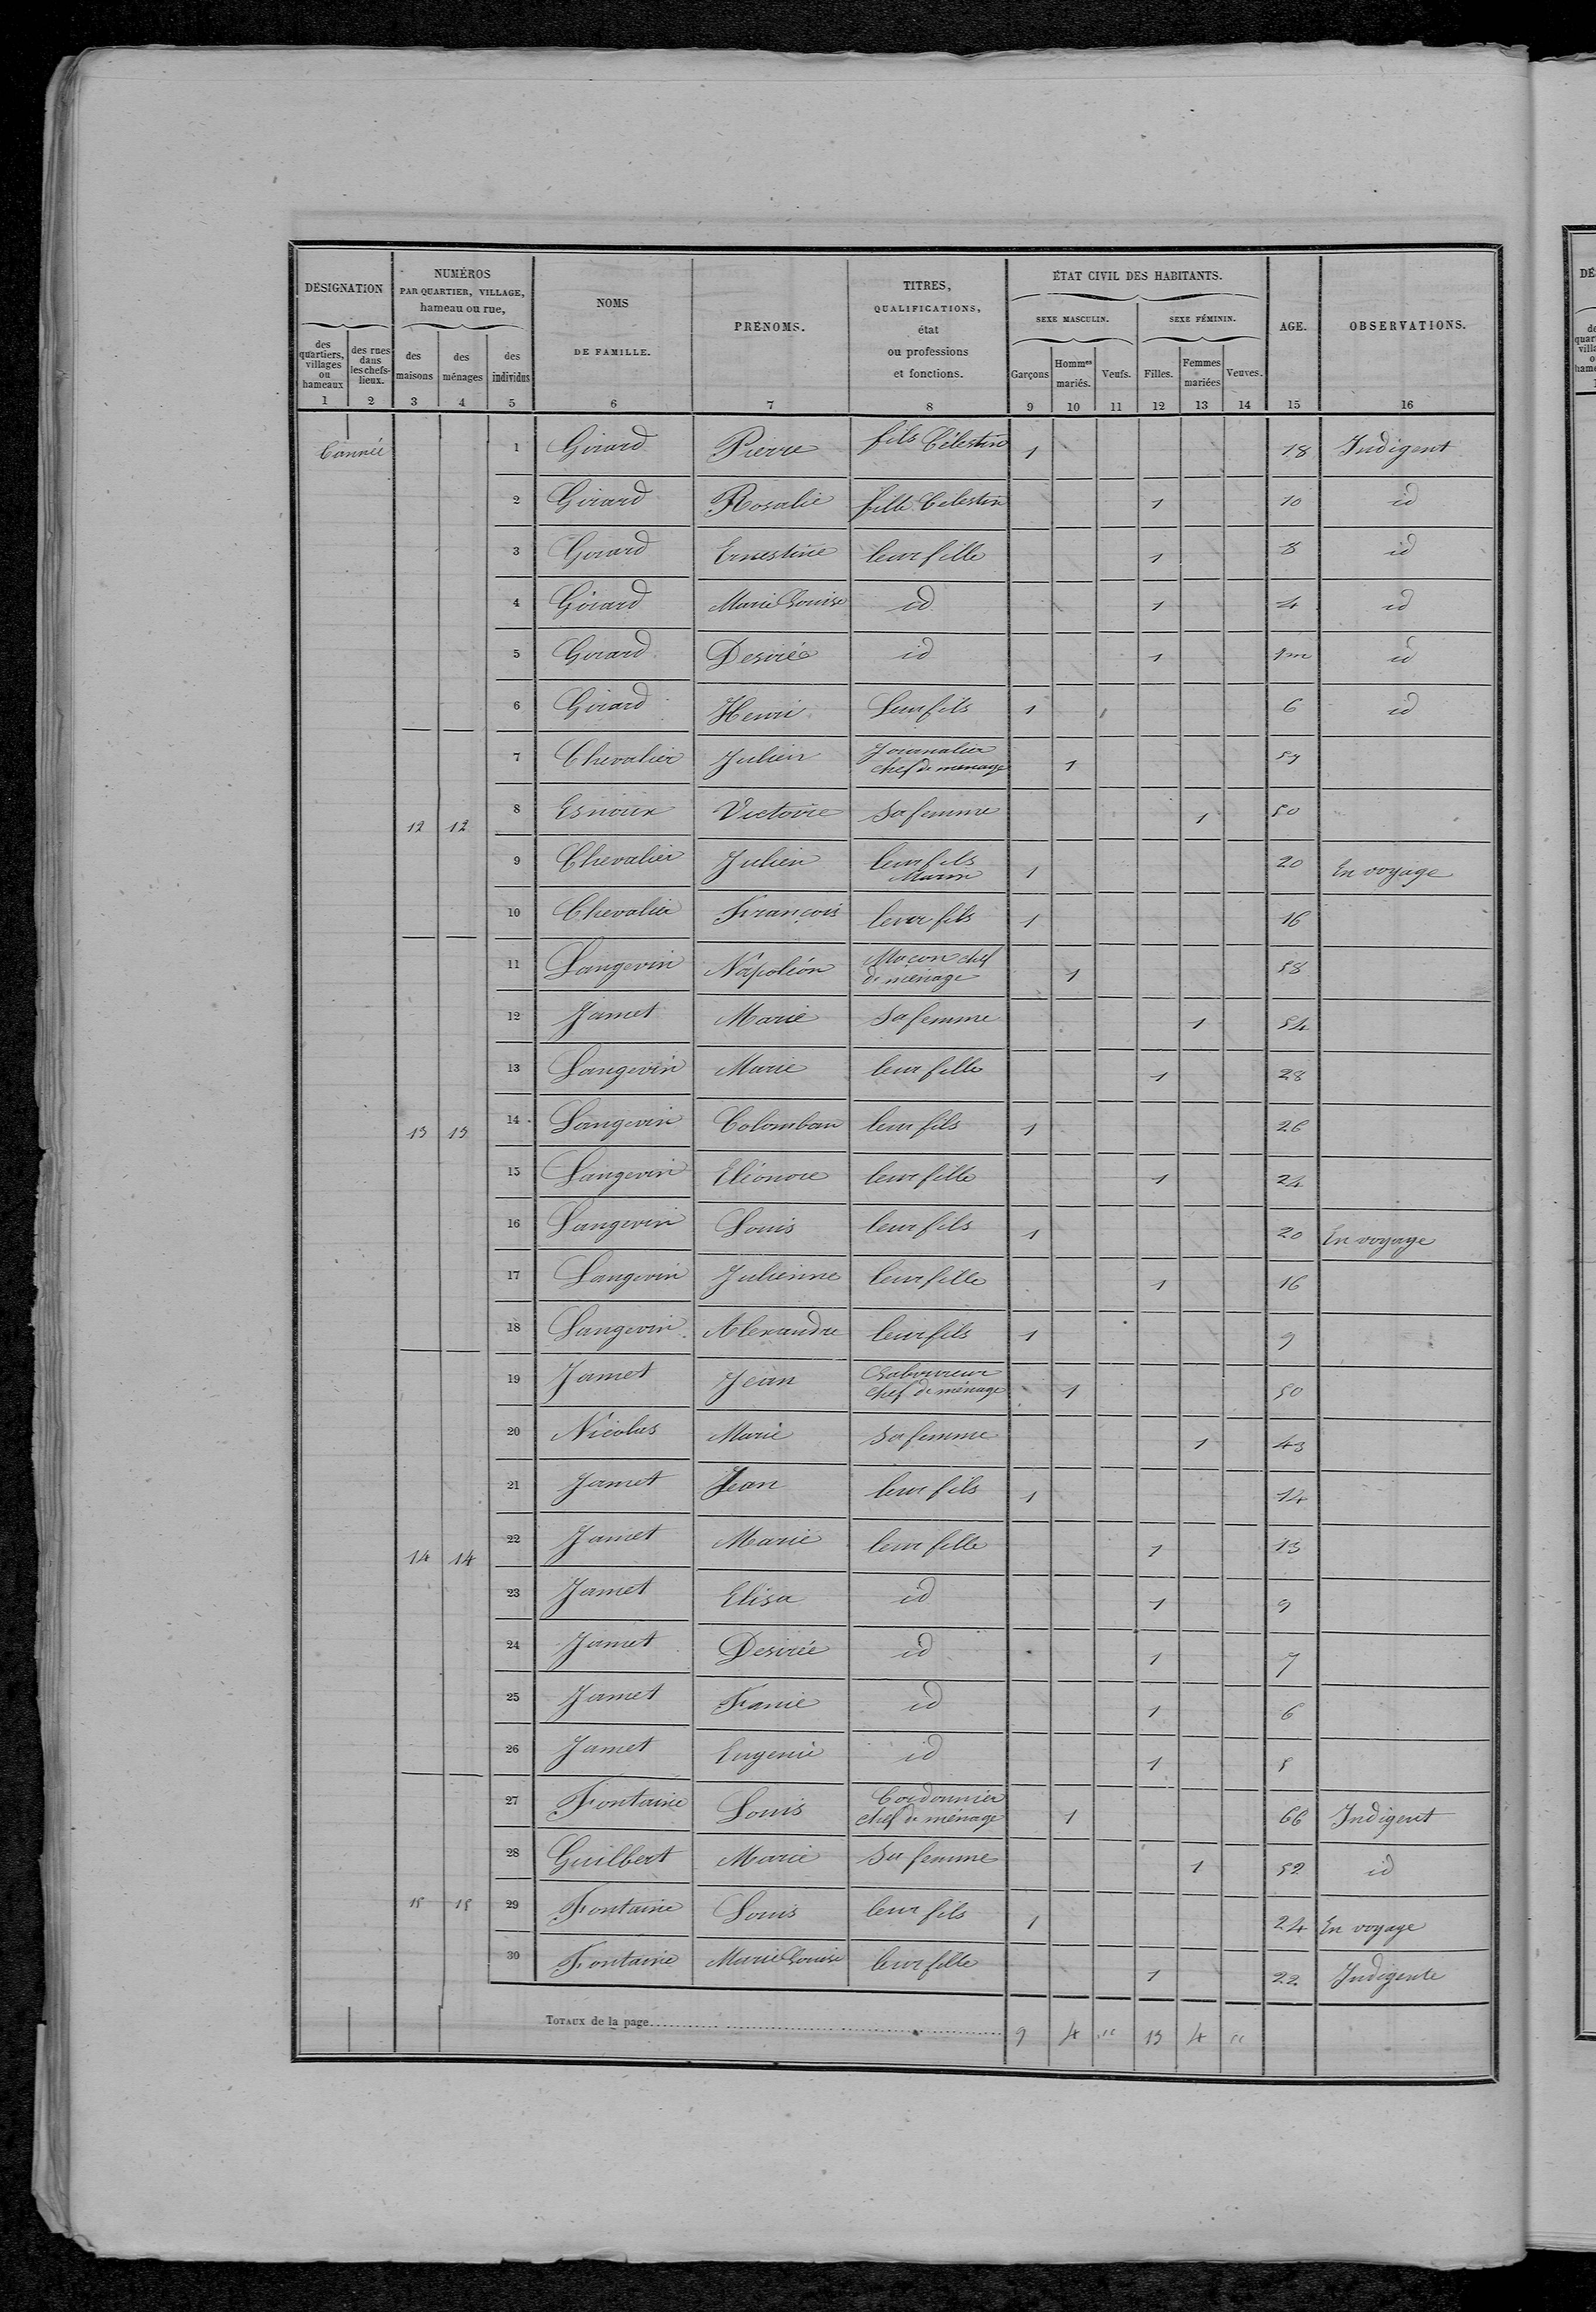 DÉSIGNATION
NUMÉROS
PAR QUARTIER, VILLAGE,
hameau ou rue,
NOMS
DE FAMILLE.
PRÉNOMS.
TITRES,
QUALIFICATIONS,
état
ou professions
et fonctions.
ÉTAT CIVIL DES HABITANTS.
SEXE MASCULIN.
SEXE FÉMININ.
AGE.
OBSERVATIONS.
des quartiers, villages ou hameaux
des rues dans les chefs-lieux.
des maisons
des ménages
des individus
Garçons
Hommes mariés.
Veufs.
Filles.
Femmes mariées
Veuves.
1 2 3 4 5 6 7 8 9 10 11 12 13 14 15 16
Cannée 1 Girard Pierre fils Célestin 1 18 Indigent
2 Girard Rosalie fille Célestin 1 10 id
3 Girard Ernestine leur fille 1 8 id
4 Girard Marie Louise id 1 4 id
5 Girard Desirée id 1 1m id
6 Girard Henri Leur fils 1 6 id
7 Chevalier Julien Journalier chef de menage 1 59
12 12 8 Esnoux Victoire Sa femme 1 50
9 Chevalier Julien leur fils Marin 1 20 En voyage
10 Chevalier François leur fils 1 16
11 Langevin Napoléon Macon chef de ménage 1 58
12 Jamet Marie Sa femme 1 54
13 Langevin Marie leur fille 1 28
13 13 14 Langevin Colomban leur fils 1 26
15 Langevin Eléonore leur fille 1 24
16 Langevin Louis leur fils 1 20 En voyage
17 Langevin Julienne leur fille 1 16
18 Langevin Alexandre leur fils 1 9
19 Jamet Jean Laboureur chef de ménage 1 50
20 Nicolas Marie Sa femme 1 43
21 Jamet Jean leur fils 1 14
14 14 22 Jamet Marie leur fille 1 13
23 Jamet Elisa id 1 9
24 Jamet Desirée id 1 7
25 Jamet Fanie id 1 6
26 Jamet Eugenie id 1 5
27 Fontaine Louis Cordonnier chef de ménage 1 66 Indigent
28 Guilbert Marie Sa femme 1 52 id
15 15 29 Fontaine Louis leur fils 1 24 En voyage
30 Fontaine Marie Louise leur fille 1 22 Indigente
TOTAUX de la page 9 4 " 13 4 "